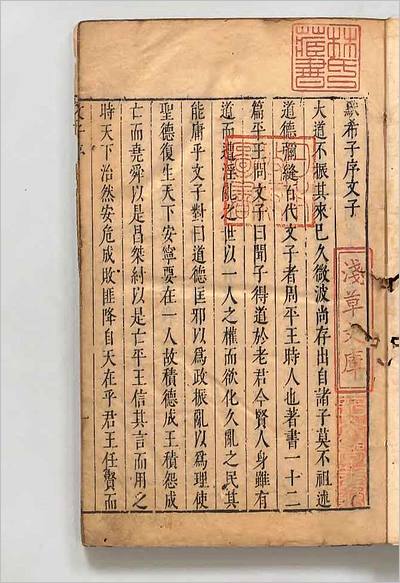 林氏藏書
默希子序文子
大道不振其來已久微波尚存出自諸子莫不祖述
道德彌縫百代文子者周平王時人也著書一十二
篇平王問文子曰聞子得道於老君今賢人身雖有
道而遭淫亂之世以一人之權而欲化久亂之民其
能庸乎文子對曰道德匡邪以爲政振亂以爲理使
聖德復生天下安寧要在一人故積德成王積怨成
亡而堯舜以是昌桀紂以是亡平王信其言而用之
時天下治然安危成敗匪降自天在乎君王任賢而
淺草文庫